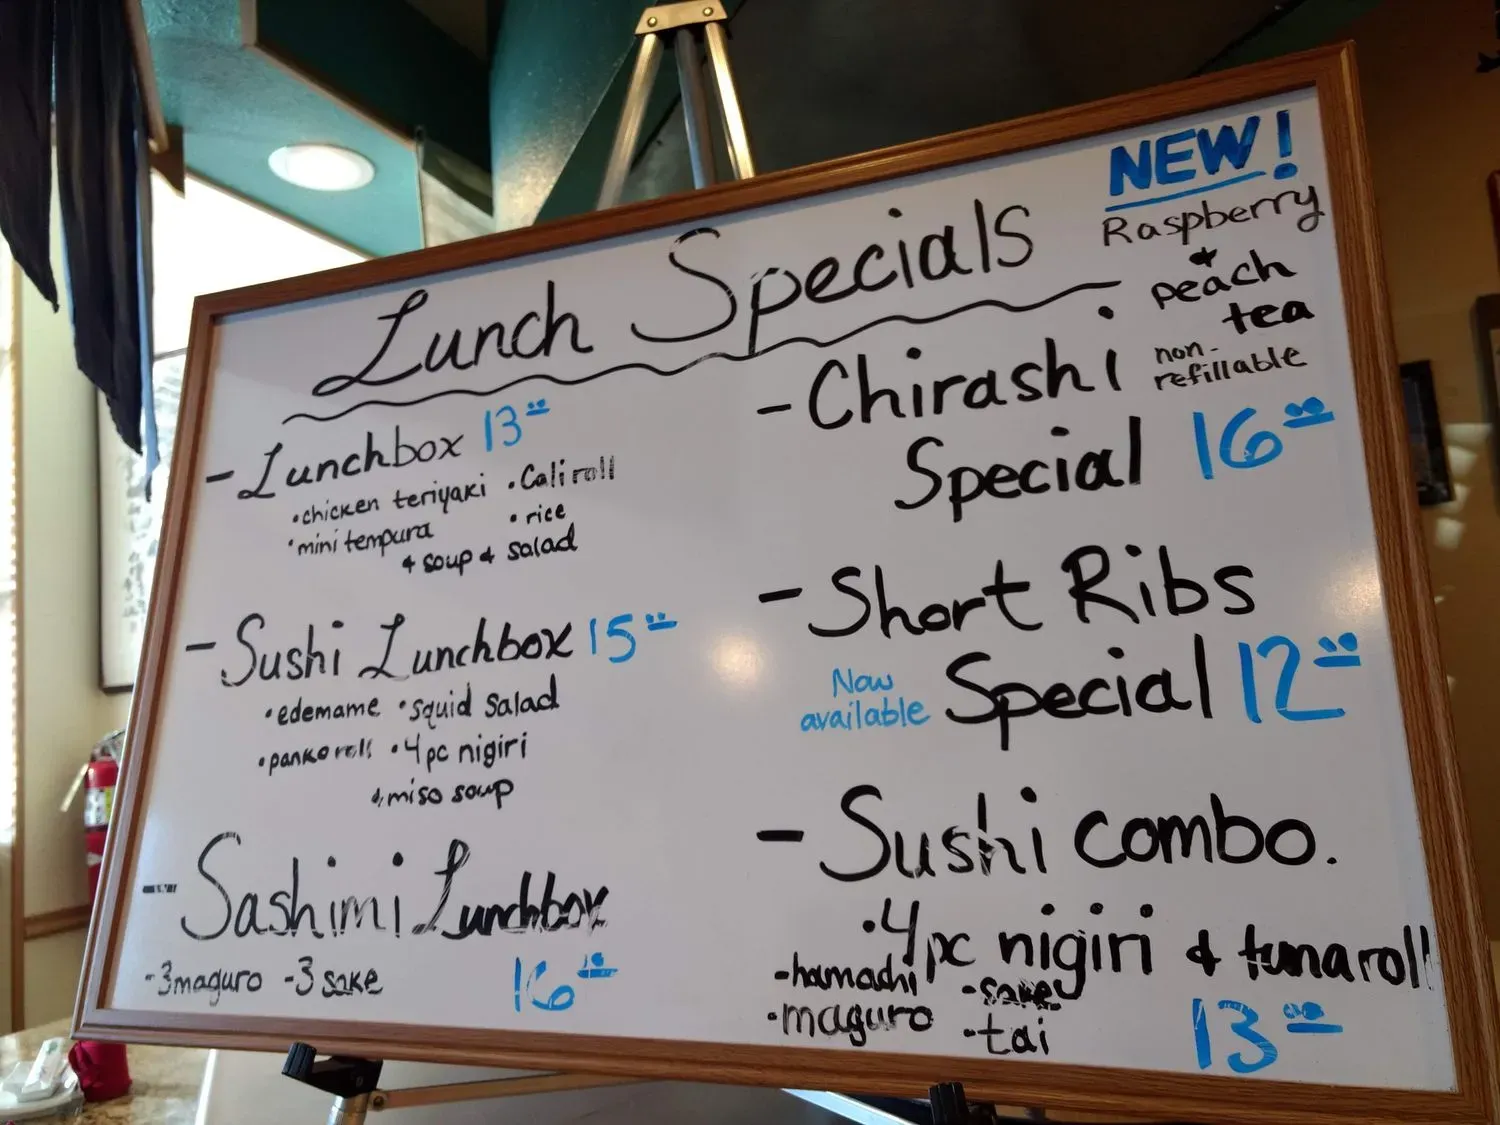 Lunch Specials
NEW!
Raspberry
& peach
tea
non-
refillable
- Lunchbox 13.00
• chicken teriyaki • Cali roll
• mini tempura • rice
& soup & salad
- Sushi Lunchbox 15.00
• edemame • squid salad
• panko roll • 4 pc nigiri
& miso soup
- Sashimi Lunchbox
- 3 maguro - 3 sake 16.00
- Chirashi
Special 16.00
- Short Ribs
Now
available
Special 12.00
- Sushi combo.
• 4 pc nigiri & tuna roll
- hamachi - sake
• maguro - tai
13.00